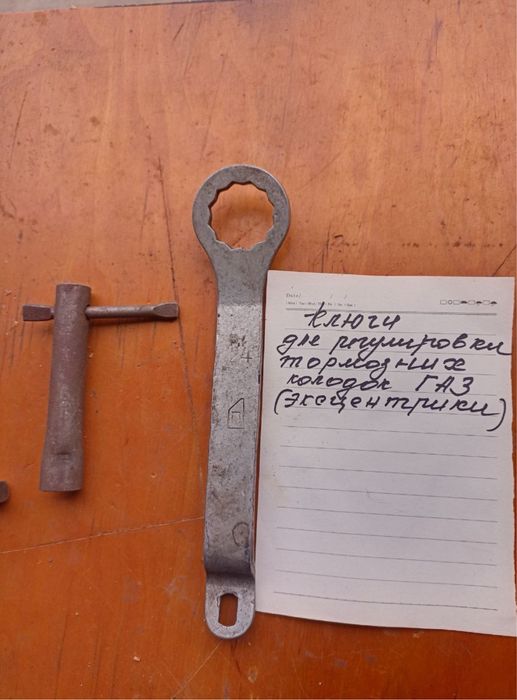 Date:
Ключи
для регулировки
тормозних
колодок ГАЗ
(эксцентрики)